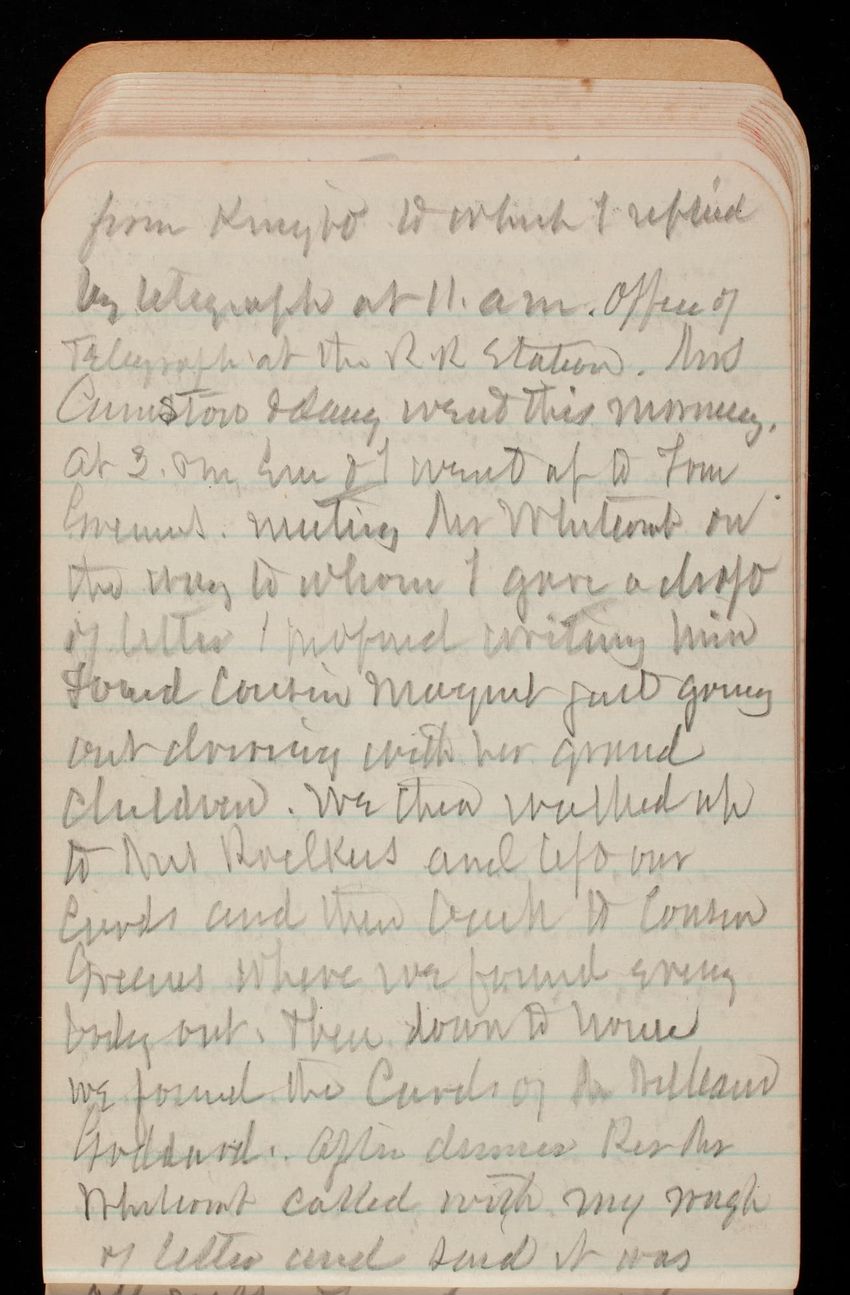 from Knight to which I replied
by telegraph at 11. am. Office of
Telegraph at the R.R Station. Mrs
went this morning.
at 3. Em & I went up to Tom
Greenes. meeting Mr Whitcomb on
the way to whom I gave a draft
of letter I proposed writing him
Found Cousin Margret just going
out driving with her grand
children. We then walked up
to Mrs Roelkers and left our
Cards and then back to Cousin
Greenes where we found every
body out. Then down to house
we found the Cards of Mr William
Goddard. After dinner Rev Mr
Whitcomb called with my rough
of letter and said it was